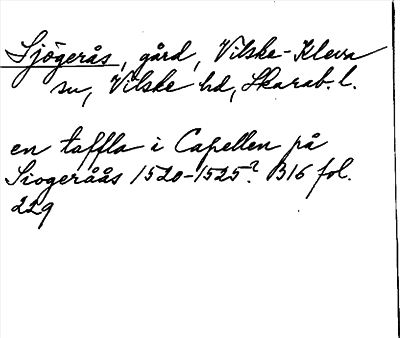 Sjögerås, gård, Vilske-Kleva
sn, Vilske hd, Skarab. l.
en taffla i Capellen på
Siogeråås 1520-1525? B16 fol.
229